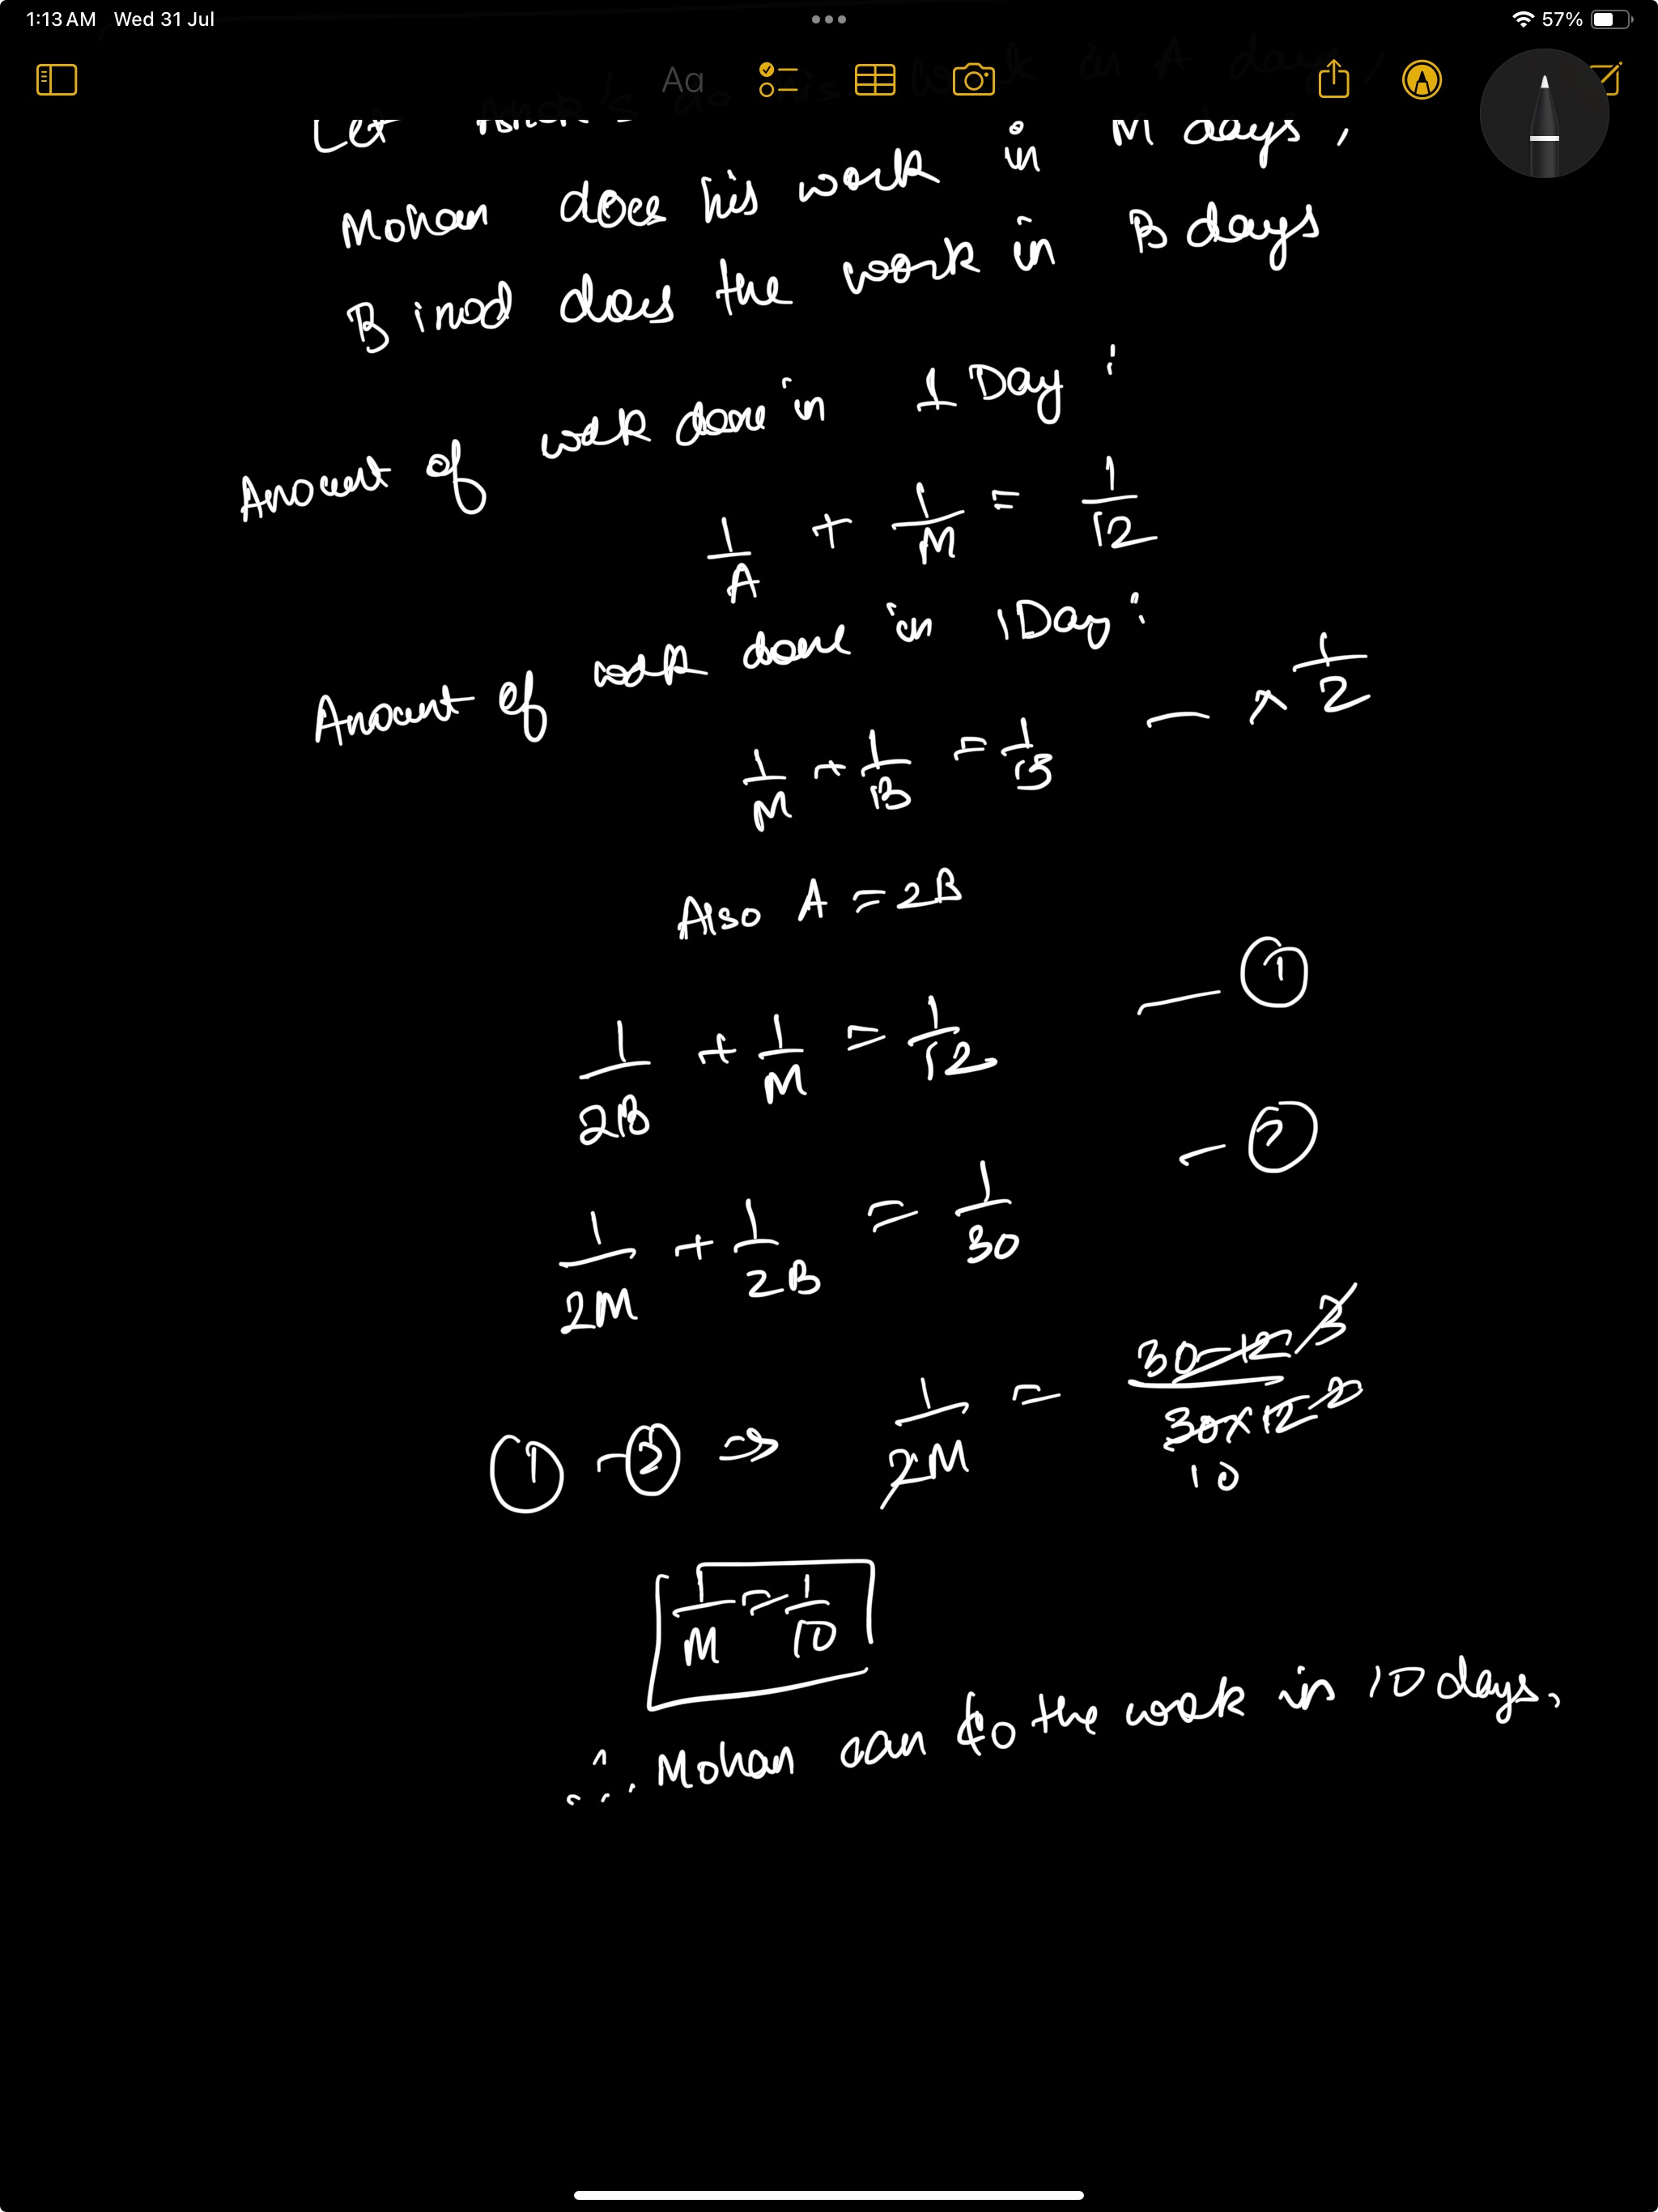 1:13 AM Wed 31 Jul 57%
Aa
in A days,
Let M days,
Mohan does his work in
Binod does the work in B days
Amount of work done in 1 Day :
1/A + 1/M = 1/12
Amount of work done in 1 Day :
1/M + 1/B = 1/15 — × 1/2
Also A = 2B
1/2B + 1/M = 1/12 — ①
1/2M + 1/2B = 1/30 — ②
① - ② ⇒ 1/2M = 30-12 3 / 30×12 2
10
1/M = 1/10
∴ Mohan can do the work in 10 days.